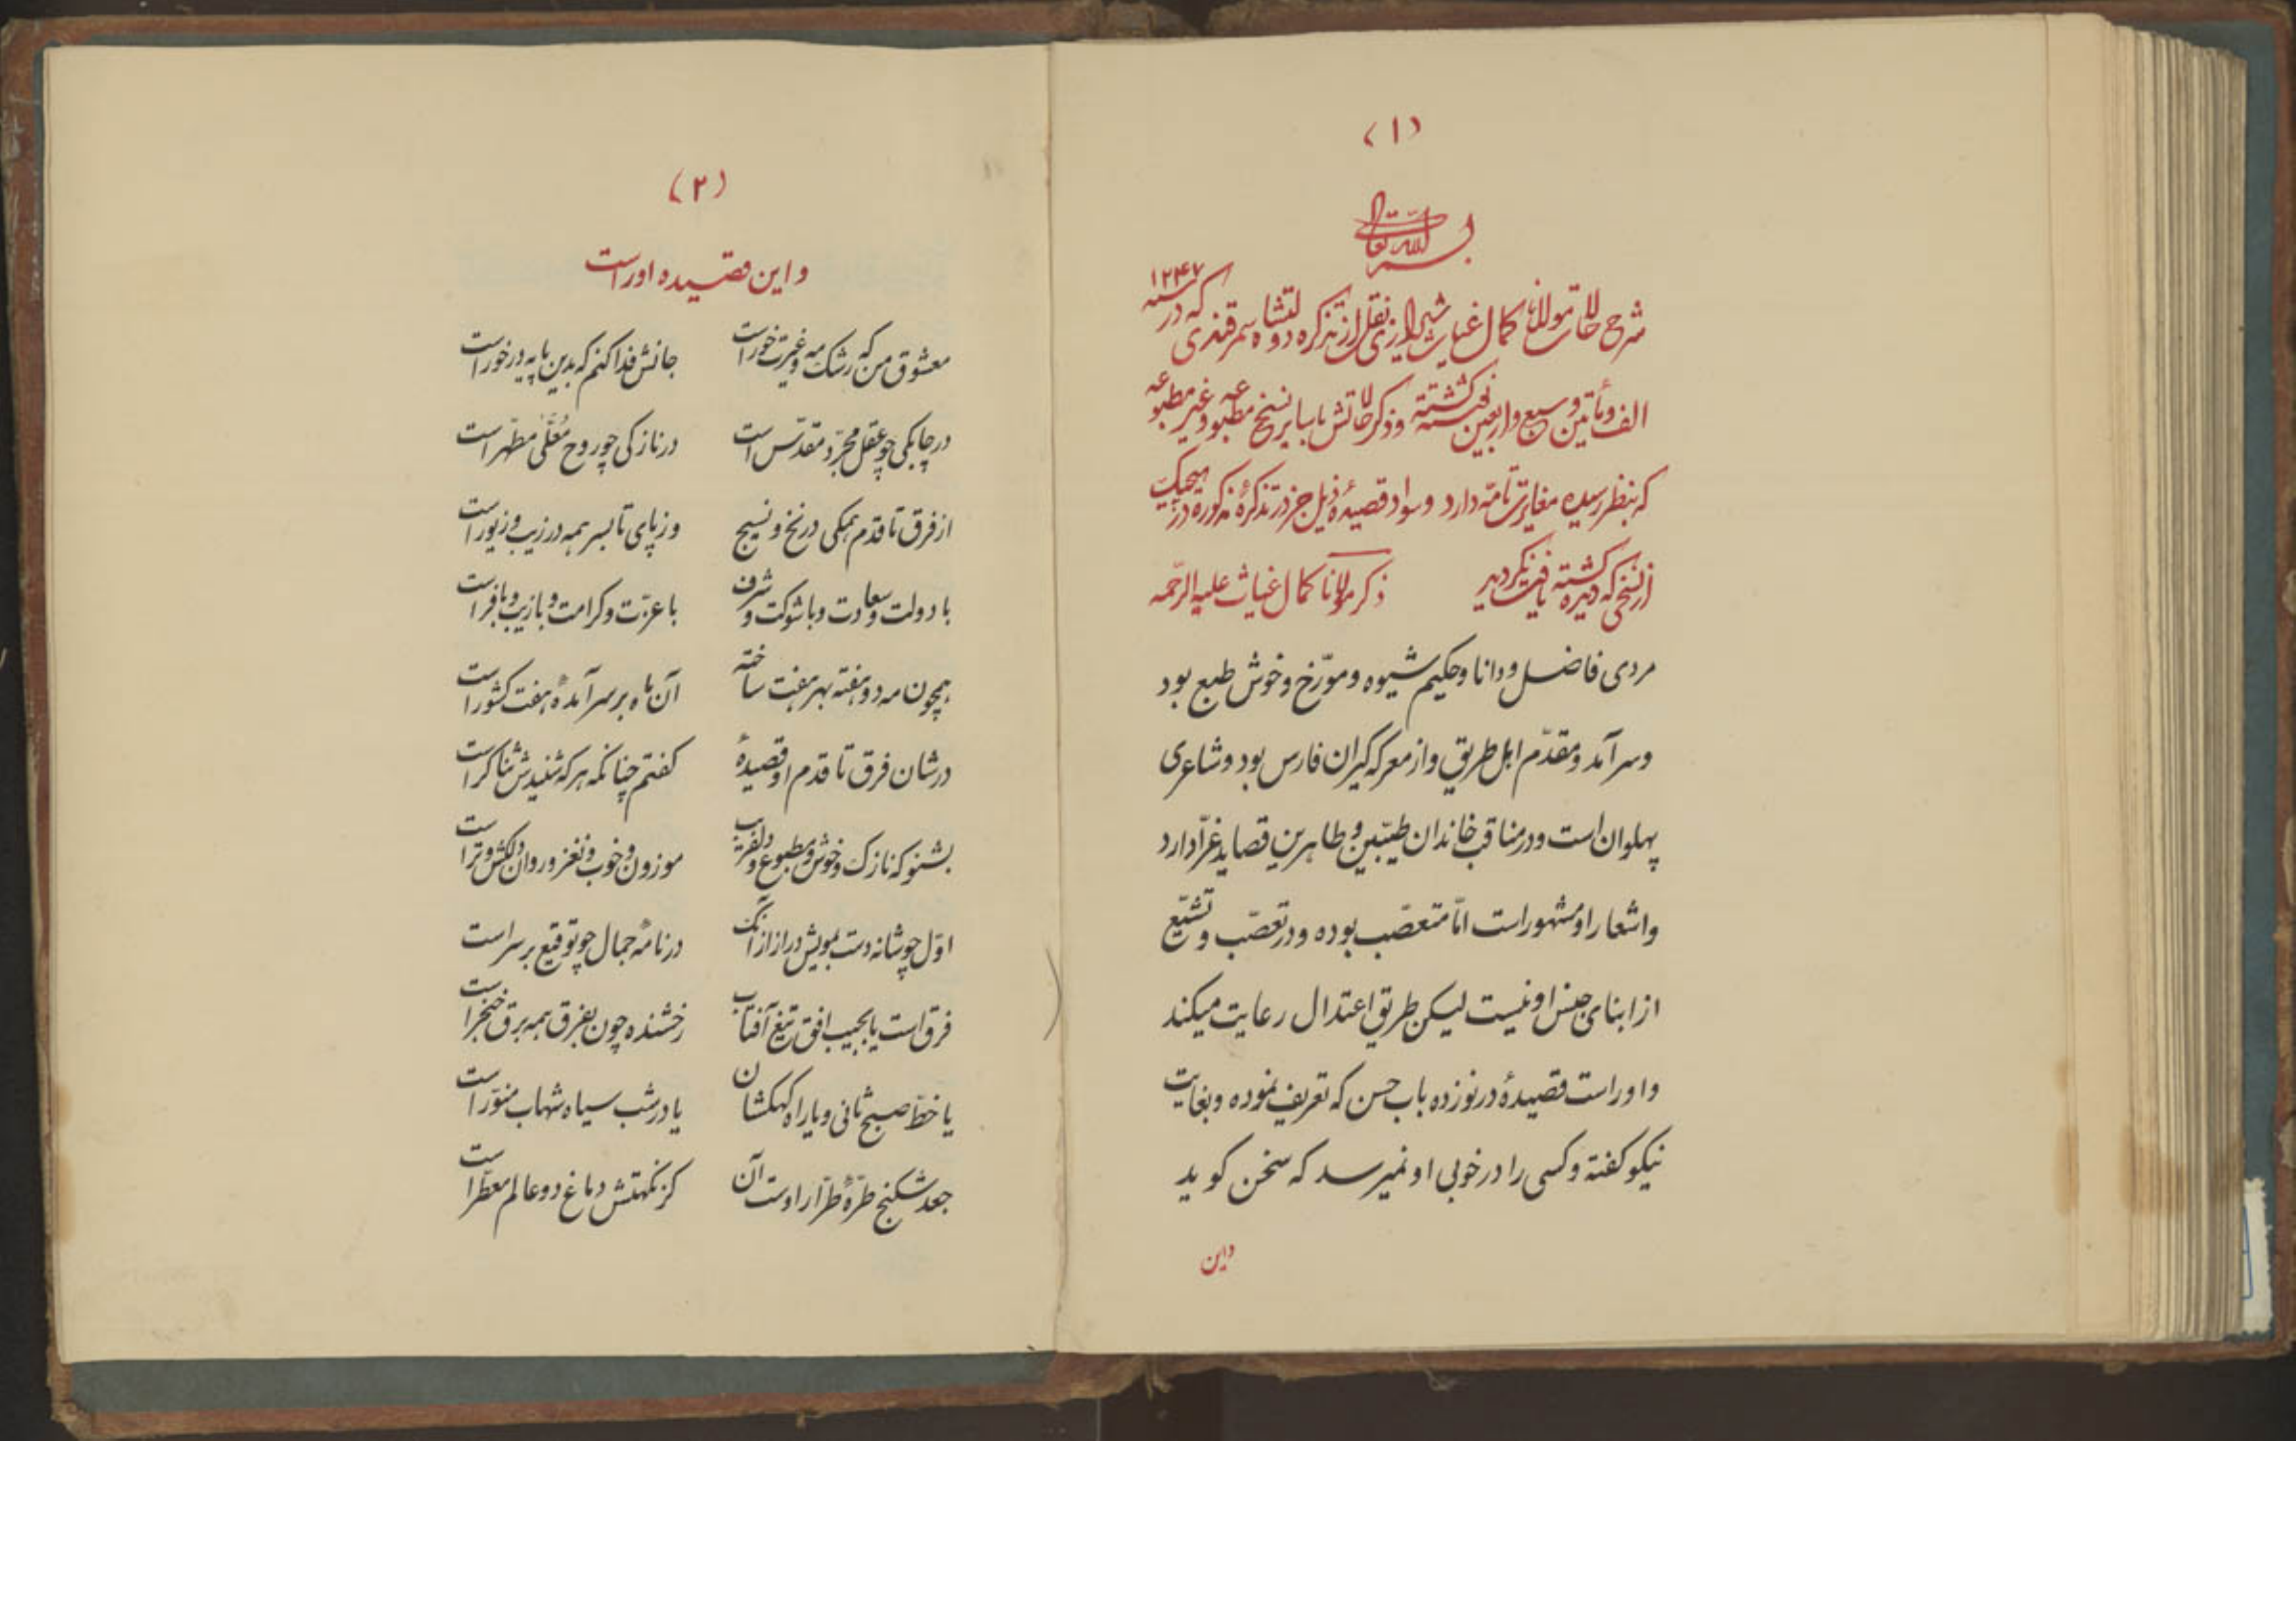 (۱)
بسم الله تعالی
شرح حالات مولانا کمال غیاث شیرازی نقل از تذکره دولتشاه سمرقندی که در سنه ۱۲۴۷
الف و مأتین و سبع و اربعین نوشته گشته و ذکر حالاتش با سایر نسخ مطبوعه و غیر مطبوعه
که بنظر رسیده مغایرت تامّه دارد و سواد قصیدهٔ ذیل جز در تذکرهٔ مذکوره در هیچیک
از نسخی که دیده گشته یافت نگردید ذکر مولانا کمال غیاث علیه الرّحمه
مردی فاضل و دانا و حکیم شیوه و مورّخ و خوش طبع بود
و سرآمد و مقدّم اهل طریق و از معرکه گیران فارس بود و شاعری
پهلوان است و در مناقب خاندان طیّبین و طاهرین قصاید غرّا دارد
و اشعار او مشهور است امّا متعصّب بوده و در تعصّب و تشیّع
از ابنای جنس او نیست لیکن طریق اعتدال رعایت میکند
و او راست قصیدهٔ در نوزده باب حسن که تعریف نموده و بغایت
نیکو گفته و کسی را در خوبی او نمیرسد که سخن گوید
واین
(۲)
و این قصیده او راست
معشوق من که رشک مه و غیرت خور است جانش فدا کنم که بدین پایه در خور است
در چابکی چو عقل مجرّد مقدّس است در نازکی چو روح مُعَلّیٰ مطهّر است
از فرق تا قدم همگی در نخ و نسیج وز پای تا بسر همه در زیب و زیور است
با دولت و سعادت و با شوکت و شرف با عزّت و کرامت و با زیب و با فر است
همچون مه دو هفته بهر هفت ساخته آن ماه بر سر آمدهٔ هفت کشور است
در شان فرق تا قدم او قصیدهٔ گفتم چنانکه هر که شنیدش ثناگر است
بشنو که نازک و خوش و مطبوع و دلفریب موزون و خوب و نغز و روان دلکش و تر است
اوّل چو شانه دست بمویش دراز از آنک در نامهٔ جمال چو توقیع بر سر است
فرق است یا بجیب افق تیغ آفتاب رخشنده چون بفرق همه برق خنجر است
یا خطّ صبح ثانی و یا راه کهکشان یا در شب سیاه شهاب منوّر است
جعد شکنج طرّهٔ طرّار اوست آن کز نکهتش دماغ دو عالم معطّر است